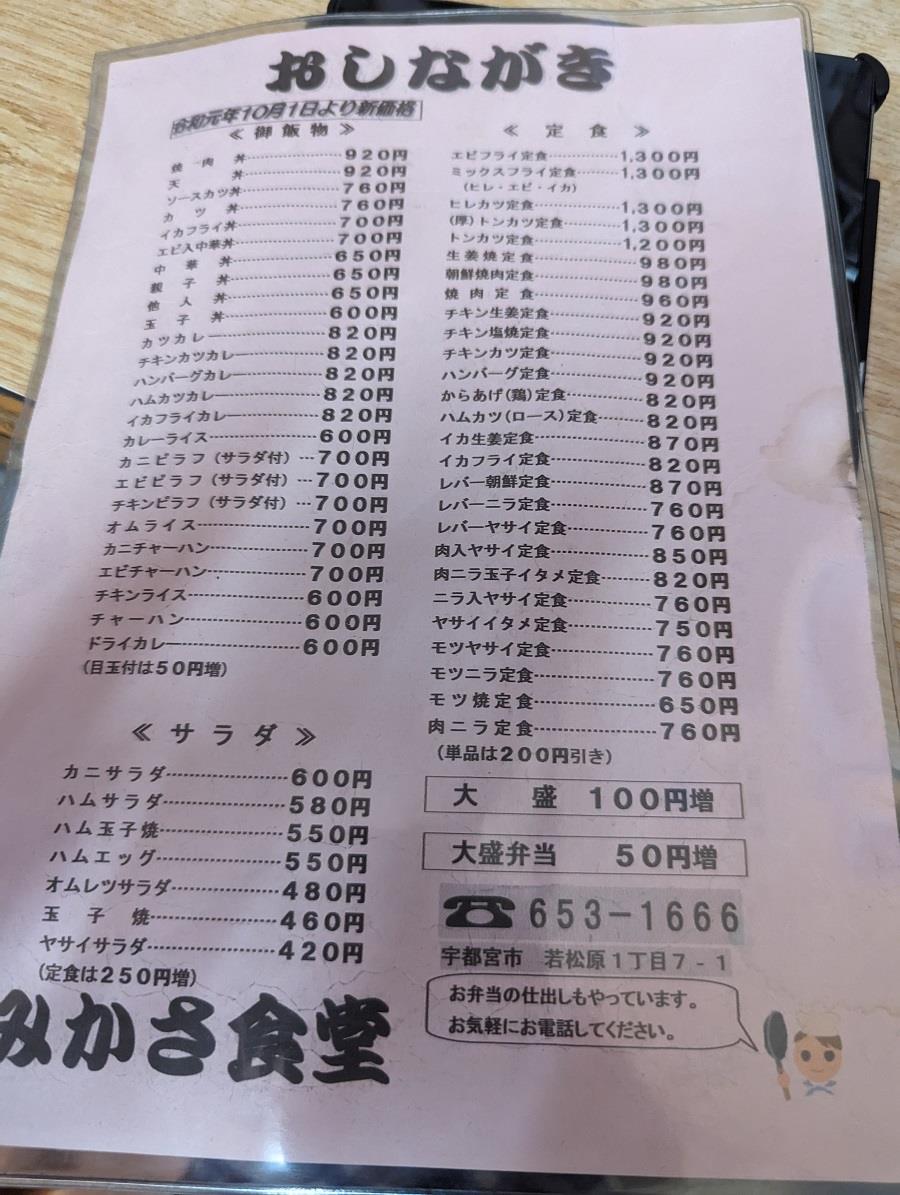 おしながき
令和元年10月1日より新価格
≪御飯物≫
焼肉丼……920円
天丼……920円
ソースカツ丼……760円
カツ丼……760円
イカフライ丼……700円
エビ入中華丼……700円
中華丼……650円
親子丼……650円
他人丼……650円
玉子丼……600円
カツカレー……820円
チキンカツカレー……820円
ハンバーグカレー……820円
ハムカツカレー……820円
イカフライカレー……820円
カレーライス……600円
カニピラフ(サラダ付)…700円
エビピラフ(サラダ付)…700円
チキンピラフ(サラダ付)…700円
オムライス……700円
カニチャーハン……700円
エビチャーハン……700円
チキンライス……600円
チャーハン……600円
ドライカレー……600円
(目玉付は50円増)
≪サラダ≫
カニサラダ……600円
ハムサラダ……580円
ハム玉子焼……550円
ハムエッグ……550円
オムレツサラダ……480円
玉子焼……460円
ヤサイサラダ……420円
(定食は250円増)
みかさ食堂
≪定食≫
エビフライ定食……1,300円
ミックスフライ定食……1,300円
(ヒレ・エビ・イカ)
ヒレカツ定食……1,300円
(厚)トンカツ定食……1,300円
トンカツ定食……1,200円
生姜焼定食……980円
朝鮮焼肉定食……980円
焼肉定食……960円
チキン生姜定食……920円
チキン塩焼定食……920円
チキンカツ定食……920円
ハンバーグ定食……920円
からあげ(鶏)定食……820円
ハムカツ(ロース)定食……820円
イカ生姜定食……870円
イカフライ定食……820円
レバー朝鮮定食……870円
レバーニラ定食……760円
レバーヤサイ定食……760円
肉入ヤサイ定食……850円
肉ニラ玉子イタメ定食……820円
ニラ入ヤサイ定食……760円
ヤサイイタメ定食……750円
モツヤサイ定食……760円
モツニラ定食……760円
モツ焼定食……650円
肉ニラ定食……760円
(単品は200円引き)
大盛 100円増
大盛弁当 50円増
☎653-1666
宇都宮市 若松原1丁目7-1
お弁当の仕出しもやっています。
お気軽にお電話してください。